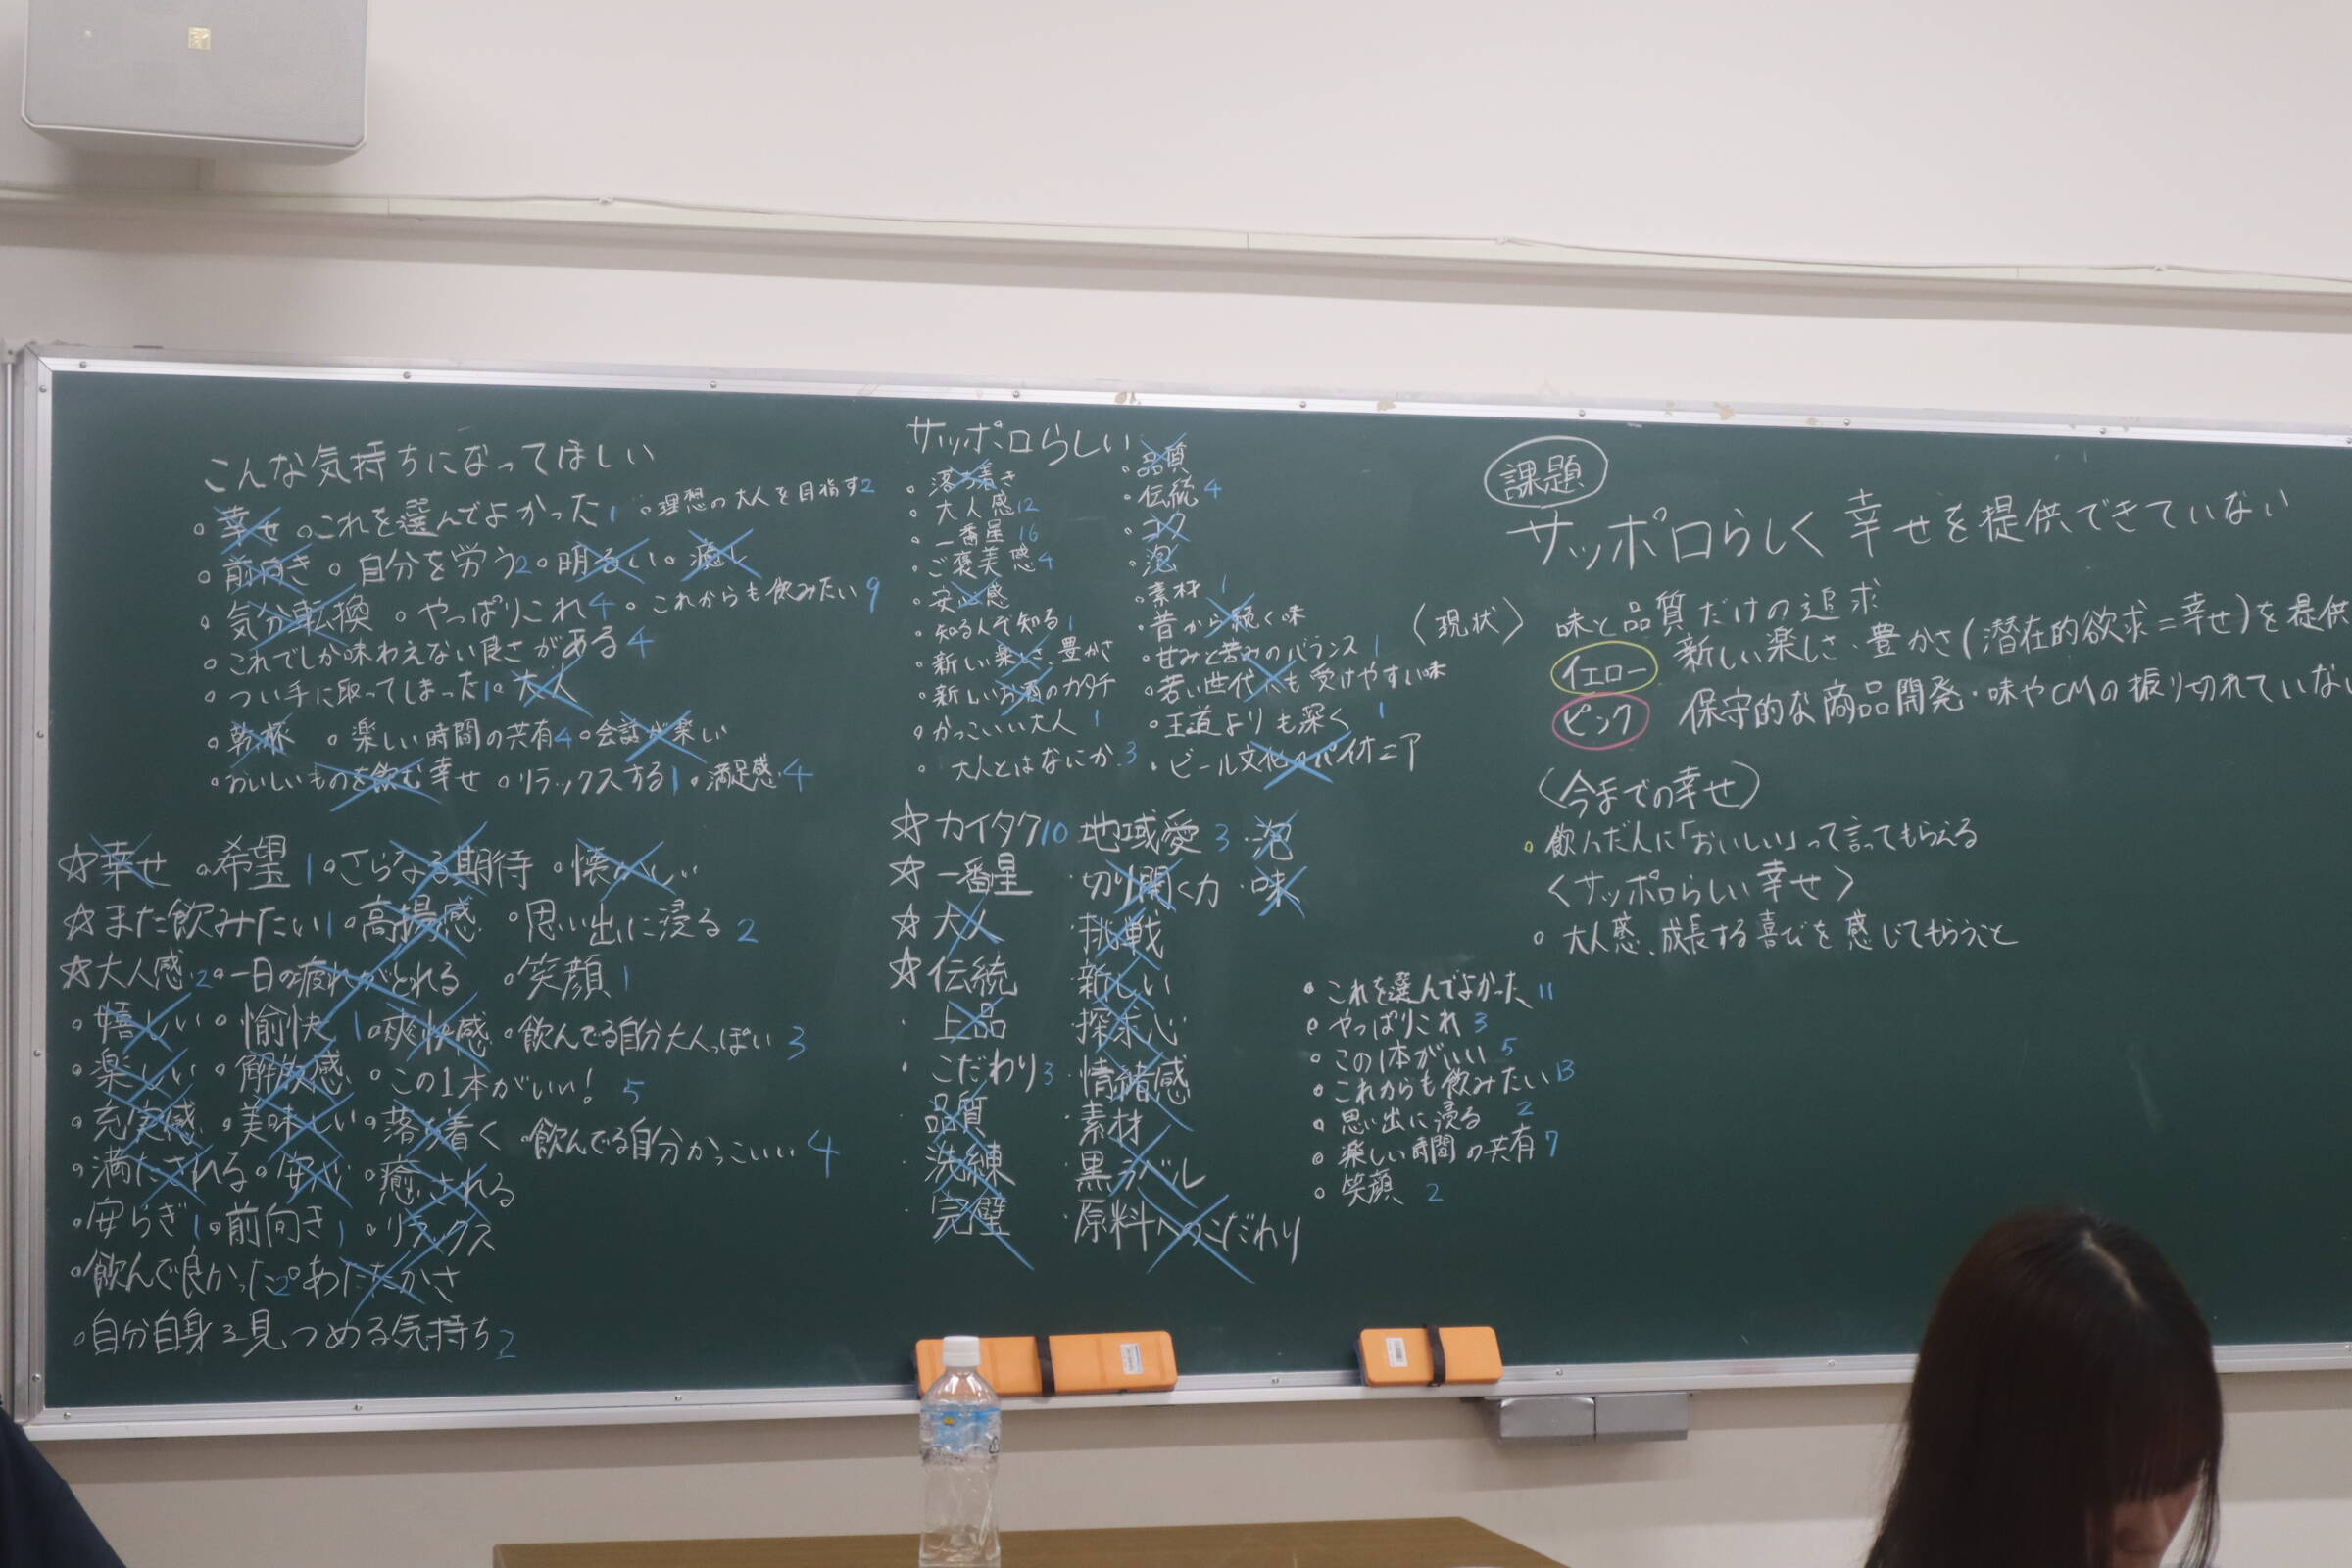 こんな気持ちになってほしい
◦幸せ ◦これを選んでよかった1 ◦理想の大人を目指す2
◦前向き ◦自分を労う2 ◦明るい ◦癒し
◦気分転換 ◦やっぱりこれ4 ◦これからも飲みたい9
◦これでしか味わえない良さがある4
◦つい手に取ってしまった1 ◦大人
◦乾杯 ◦楽しい時間の共有4 ◦会話が楽しい
◦おいしいものを飲む幸せ ◦リラックスする1 ◦満足感4
☆幸せ ◦希望1 ◦さらなる期待 ◦懐かしい
☆また飲みたい1 ◦高揚感 ◦思い出に浸る2
☆大人感2 ◦一日の疲れがとれる ◦笑顔1
◦嬉しい ◦愉快1 ◦爽快感 ◦飲んでる自分大人っぽい3
◦楽しい ◦解放感 ◦この1本がいい!5
◦充実感 ◦美味しい ◦落ち着く ◦飲んでる自分かっこいい4
◦満たされる ◦安心 ◦癒される
◦安らぎ1 ◦前向き1 ◦リラックス
◦飲んで良かった2 ◦あたたかさ
◦自分自身を見つめる気持ち2
サッポロらしい
◦落ち着き
◦大人感12
◦一番星16
◦ご褒美感4
◦安心感
◦知る人ぞ知る1
◦新しい楽しさ、豊かさ
◦新しいお酒のカタチ
◦かっこいい大人1
◦大人とはなにか3
◦品質
◦伝統4
◦コク
◦泡
◦素材1
◦昔から続く味
◦甘みと苦みのバランス1
◦若い世代にも受けやすい味
◦王道よりも深く1
・ビール文化のパイオニア
☆カイタク10 地域愛3 ・泡
☆一番星 ・切り開く力 ・味
☆大人 ・挑戦
☆伝統 ・新しい
・上品 ・探求心
・こだわり3 ・情緒感
・品質 ・素材
・洗練 ・黒ラベル
・完璧 ・原料へのこだわり
◦これを選んでよかった11
◦やっぱりこれ3
◦この1本がいい5
◦これからも飲みたい13
◦思い出に浸る2
◦楽しい時間の共有7
◦笑顔2
課題
サッポロらしく幸せを提供できていない
〈現状〉 味と品質だけの追求
イエロー 新しい楽しさ・豊かさ(潜在的欲求=幸せ)を提供
ピンク 保守的な商品開発・味やCMの振り切れていない
〈今までの幸せ〉
◦飲んだ人に「おいしい」って言ってもらえる
〈サッポロらしい幸せ〉
◦大人感、成長する喜びを感じてもらうこと